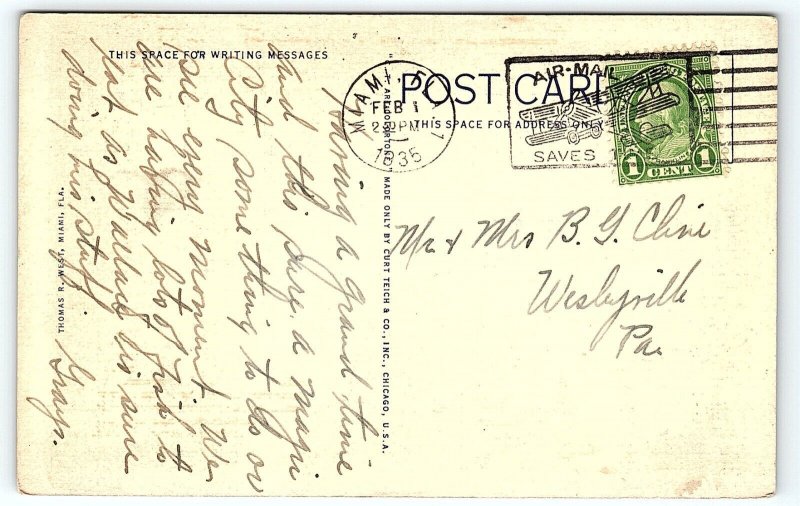 THIS SPACE FOR WRITING MESSAGES
POST CARD
THIS SPACE FOR ADDRESS ONLY
MIAMI, FLA.
FEB 1
2 PM
1935
AIR-MAIL
SAVES
1 CENT 1
Having a grand time
and this sure a magic
City some thing to do or
see every moment. We
are having lots of fish to
eat as Wallace is sure
doing his stuff.
Grays.
Mr & Mrs B. G. Cline
Wesleyville
Pa
THOMAS R. WEST, MIAMI, FLA.
"ART-COLORTONE" MADE ONLY BY CURT TEICH & CO., INC., CHICAGO, U.S.A.